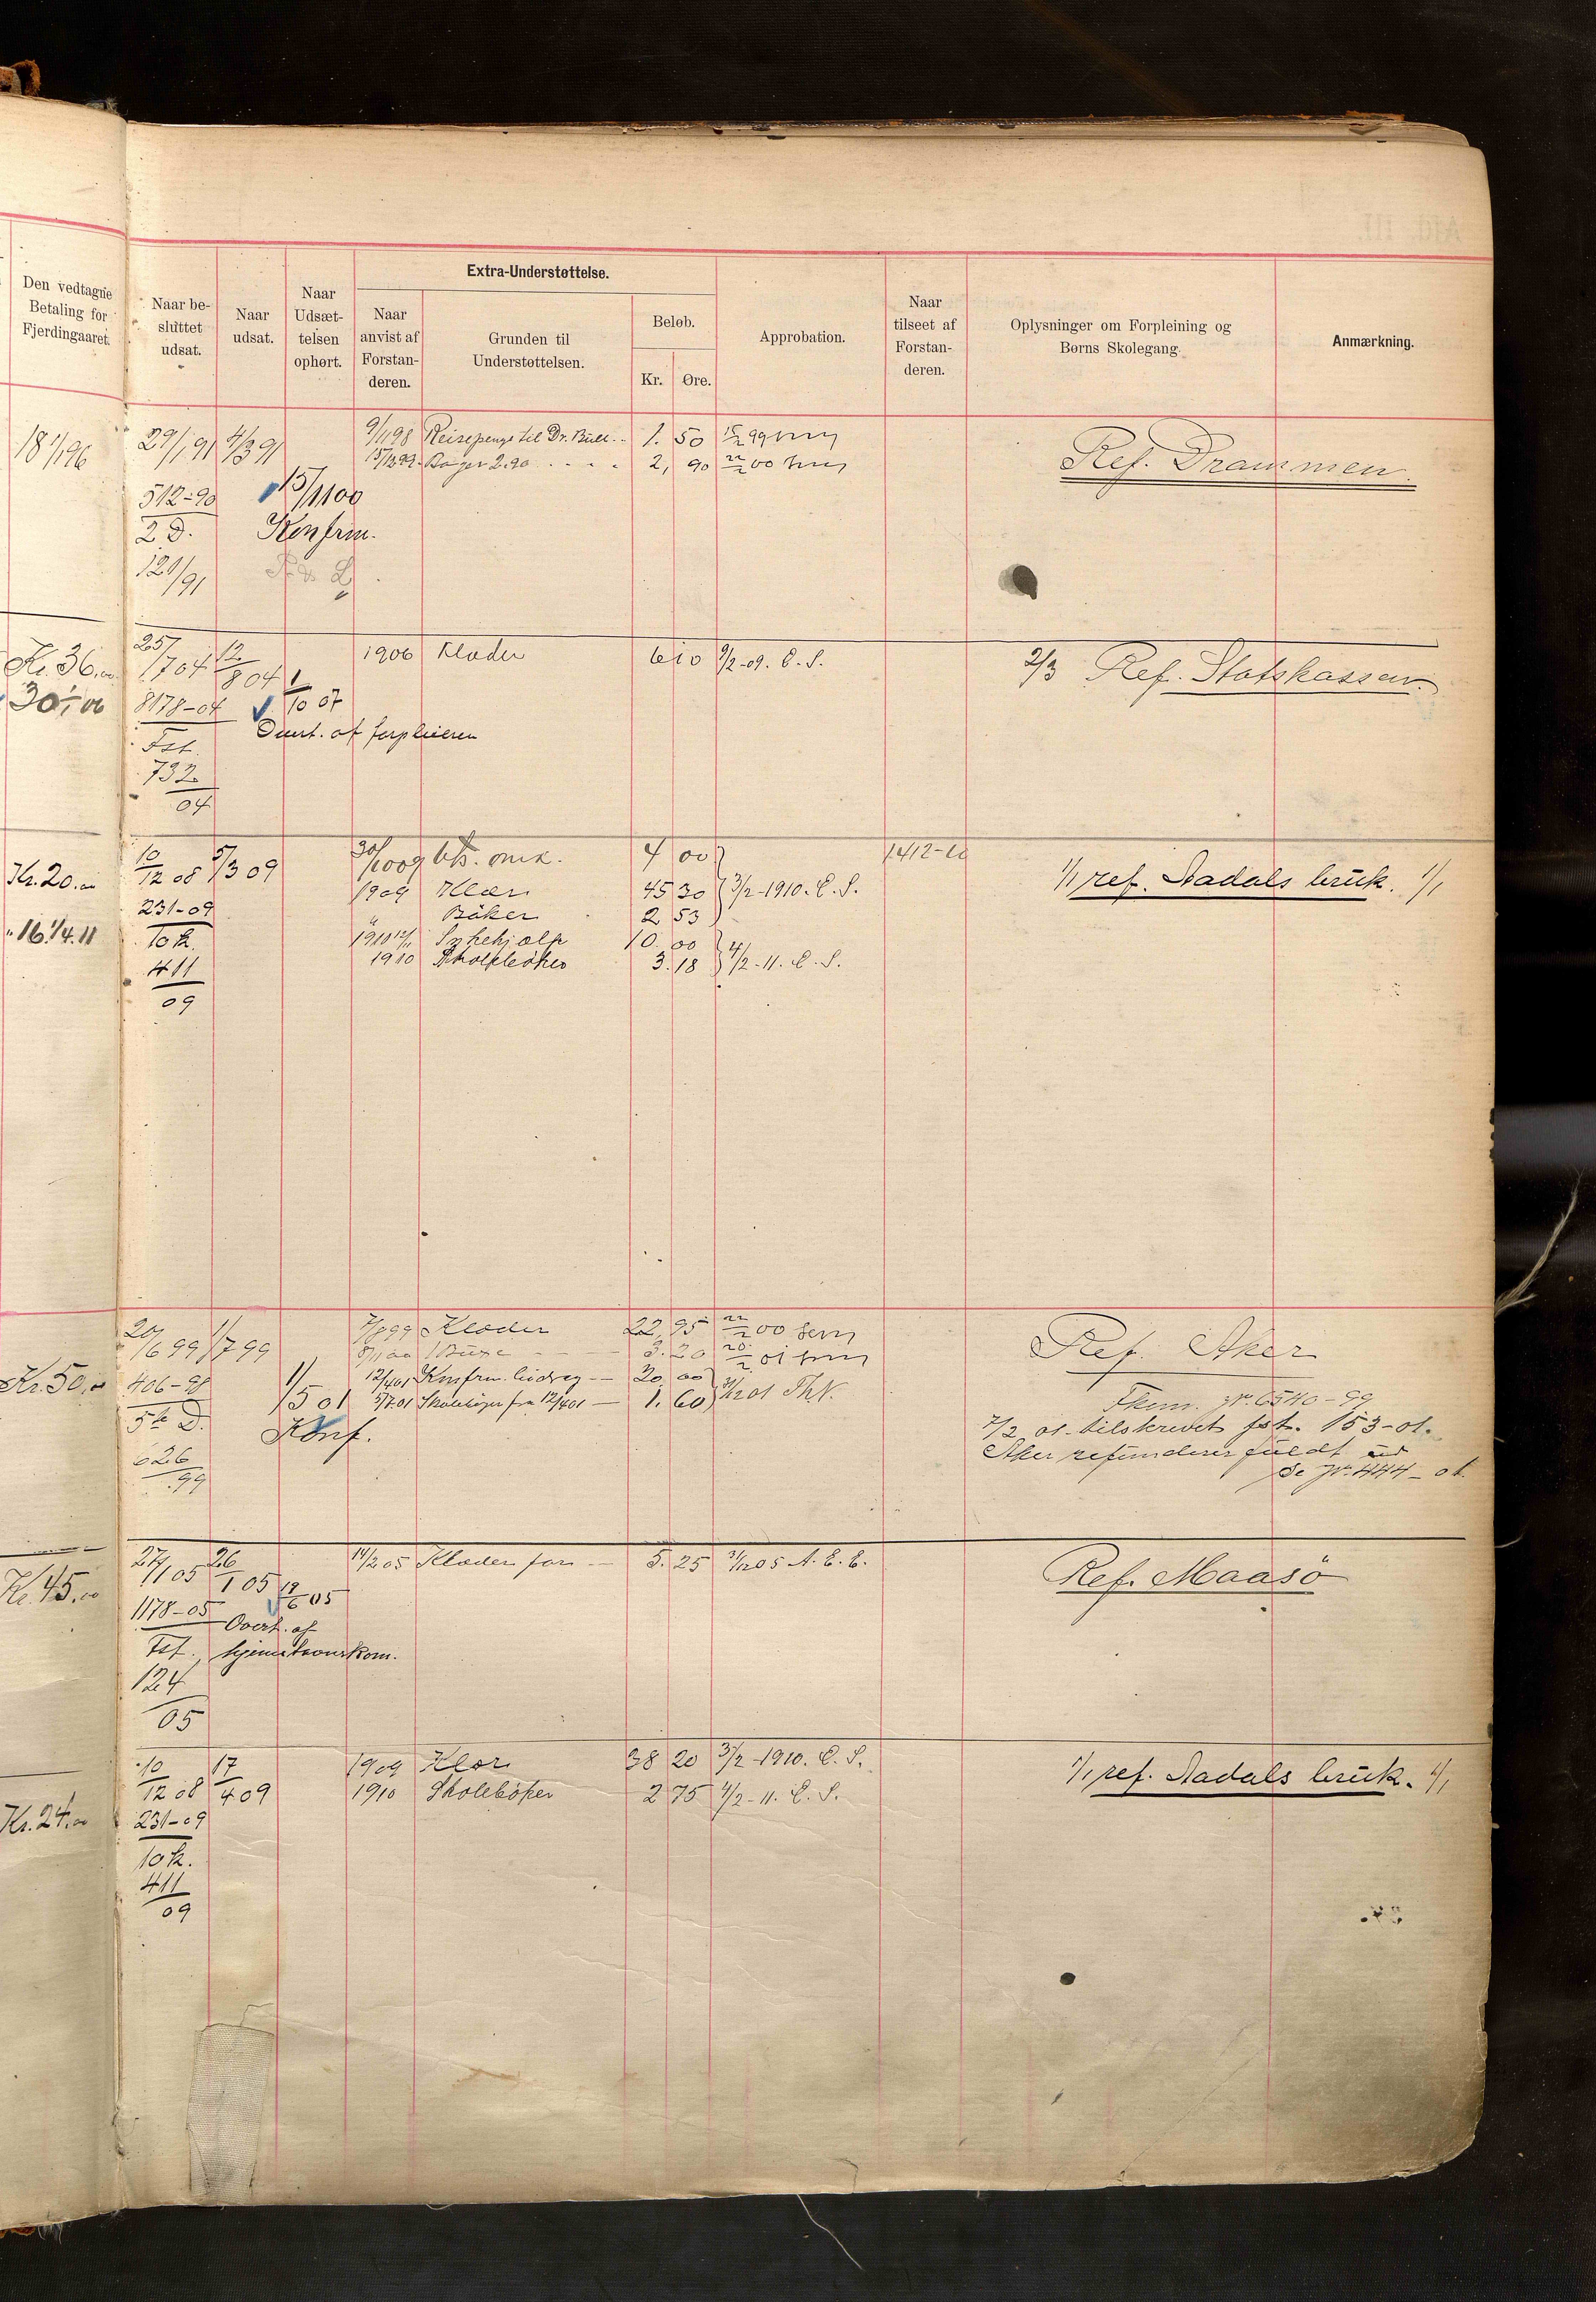 Den vedtagne
Betaling for
Fjerdingaaret.
Naar be-
sluttet
udsat.
Naar
udsat.
Naar
Udsæt-
telsen
ophørt.
Extra-Understøttelse.
Naar
anvist af
Forstan-
deren.
Grunden til
Understøttelsen.
Beløb.
Kr. Øre.
Approbation.
Naar
tilseet af
Forstan-
deren.
Oplysninger om Forpleining og
Børns Skolegang.
Anmærkning.
18 1/1 96
29/1 91 4/3 91 9/1198 Reisepenge til Dr. Bull 1. 50 15/2 99
15/12 99 Bøger 2.90 2, 90 22/2 00
Ref. Drammen.
512-90 15/11 00
2 D. Konfrm.
121/91
Kr. 36.00
30,00
25/7 04 12/8 04 1/10 07 1906 Klæder 6 10 9/2-09. C. S.
2/3 Ref. Statskassen.
8178-04
Overt. af forpleieren
Fst.
732
04
Kr. 20.00
16. 1/4. 11
10/12 08 5/3 09 30/10 09 4 00 1412-10
1/1 ref. Aadals bruk. 1/1
1909 Klær 45 30 3/2-1910. C. S.
231-09 " Bøker 2 53
10 k. 1910 Syhehjælp 10. 00
1910 Skolebøker 3. 18 4/2-11. C. S.
411
09
Kr. 50.00
20/6 99 1/7 99 7/8 99 Klæder 22, 95 22/2 00
8/11 00 1 Buxe 3. 20 20/2 01
Ref. Aker
406-98 1/5 01 12/4 01 Konfrm. bidrag 20, 00
5/7 01 Skolebøger fra 12/4 01 1. 60 31/12 01 Th.N.
5te D. Konf.
626
99
Fkom. Jr. 6540-99
7/2 01 tilskrevet fst. 153-01.
Aker refunderer fuldt ud
Se Jr. 444-01
Kr. 45.00
27/1 05 26/1 05 19/6 05 14/2 05 Klæder for 5. 25 31/12 05 A. E. E.
Ref. Maasö
1178-05 Overt. af
Fst. hjemstavnskom.
124
05
Kr. 24.00
10/12 08 17/4 09 1909 Klær 38 20 3/2-1910. C. S.
1910 Skolebøker 2 75 4/2-11. C. S.
1/1 ref. Aadals bruk. 1/1
231-09
10 k.
411
09